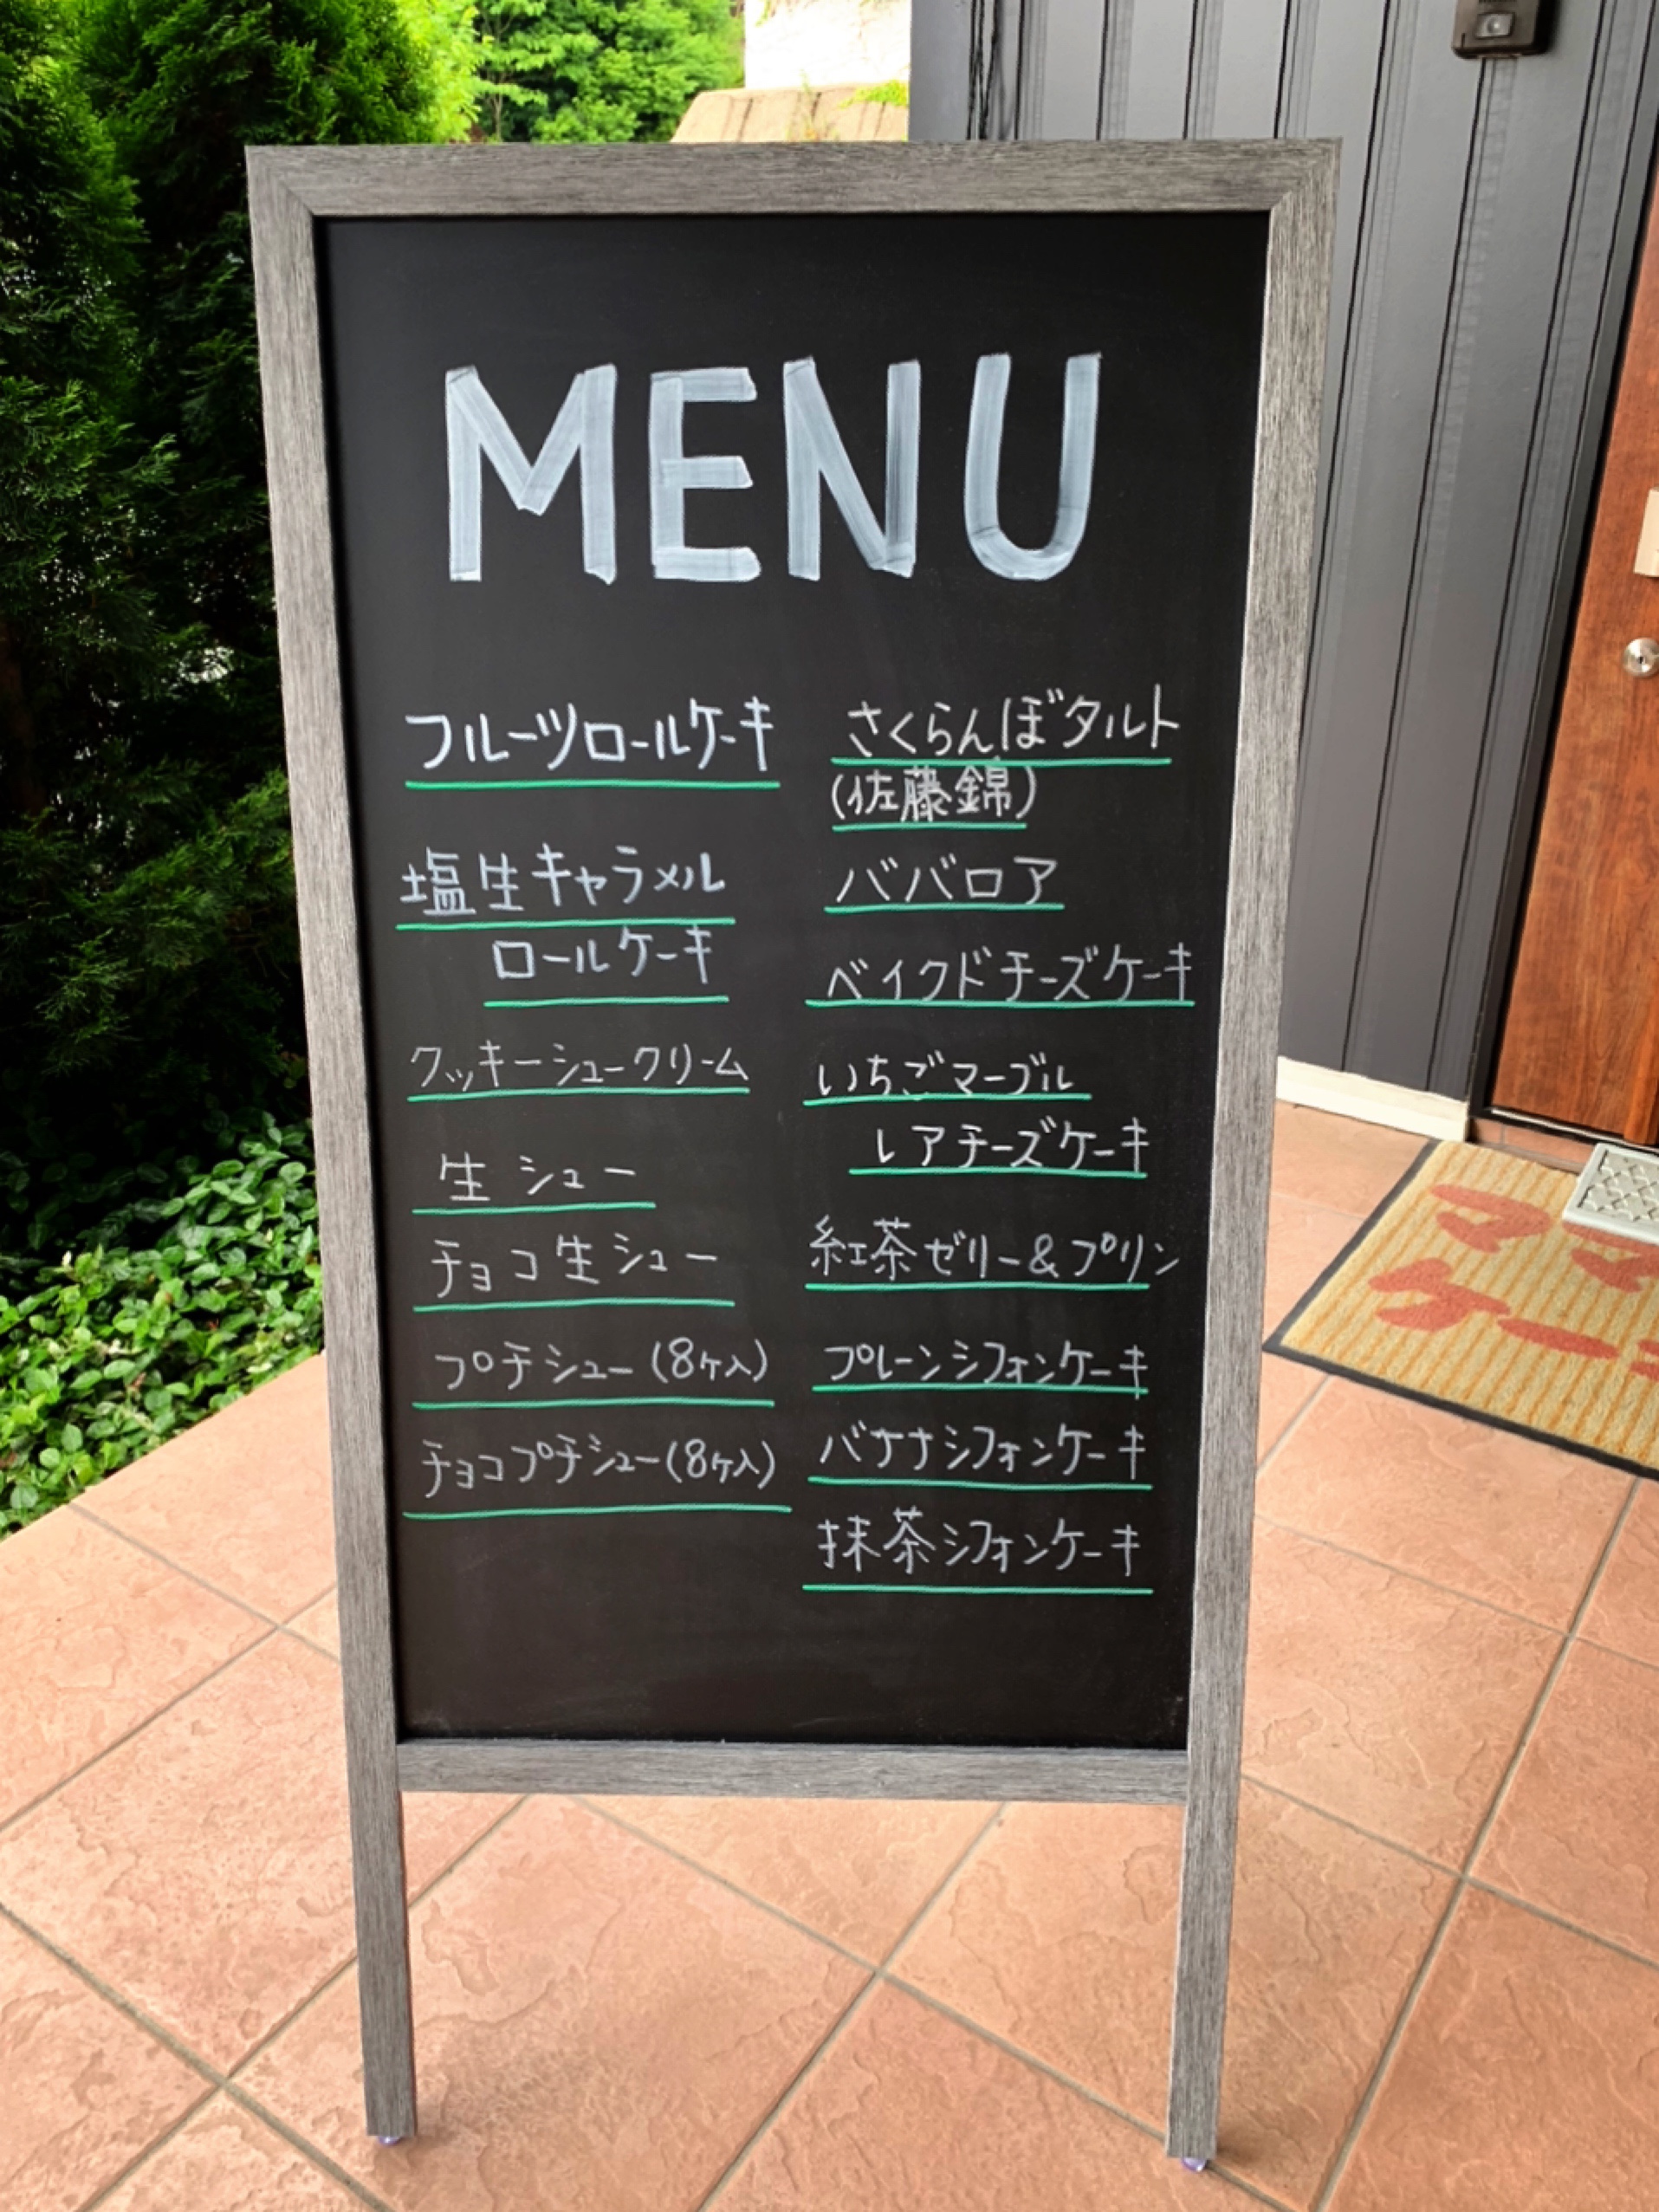 MENU
フルーツロールケーキ
塩生キャラメル
ロールケーキ
クッキーシュークリーム
生シュー
チョコ生シュー
プチシュー(8ヶ入)
チョコプチシュー(8ヶ入)
さくらんぼタルト
(佐藤錦)
ババロア
ベイクドチーズケーキ
いちごマーブル
レアチーズケーキ
紅茶ゼリー&プリン
プレーンシフォンケーキ
バナナシフォンケーキ
抹茶シフォンケーキ